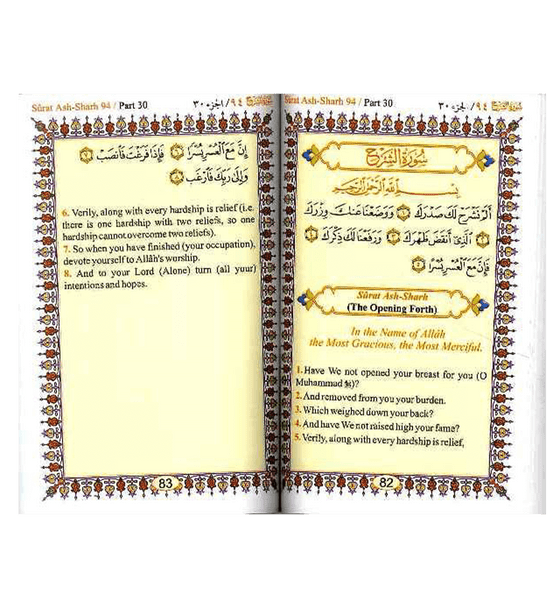 Sûrat Ash-Sharh 94 / Part 30 سورة الشرح ٩٤ / الجزء ٣٠
سُورَةُ الشَّرْحِ
بِسْمِ اللَّهِ الرَّحْمَٰنِ الرَّحِيمِ
أَلَمْ نَشْرَحْ لَكَ صَدْرَكَ ١ وَوَضَعْنَا عَنكَ وِزْرَكَ
٢ الَّذِي أَنقَضَ ظَهْرَكَ ٣ وَرَفَعْنَا لَكَ ذِكْرَكَ ٤
فَإِنَّ مَعَ الْعُسْرِ يُسْرًا ٥
Sûrat Ash-Sharh
(The Opening Forth)
In the Name of Allâh
the Most Gracious, the Most Merciful.
1. Have We not opened your breast for you (O
Muhammad ﷺ)?
2. And removed from you your burden.
3. Which weighed down your back?
4. And have We not raised high your fame?
5. Verily, along with every hardship is relief,
82
Sûrat Ash-Sharh 94 / Part 30 سورة الشرح ٩٤ / الجزء ٣٠
إِنَّ مَعَ الْعُسْرِ يُسْرًا ٦ فَإِذَا فَرَغْتَ فَانصَبْ ٧
وَإِلَىٰ رَبِّكَ فَارْغَب ٨
6. Verily, along with every hardship is relief (i.e.
there is one hardship with two reliefs, so one
hardship cannot overcome two reliefs).
7. So when you have finished (your occupation),
devote yourself to Allâh's worship.
8. And to your Lord (Alone) turn (all your)
intentions and hopes.
83